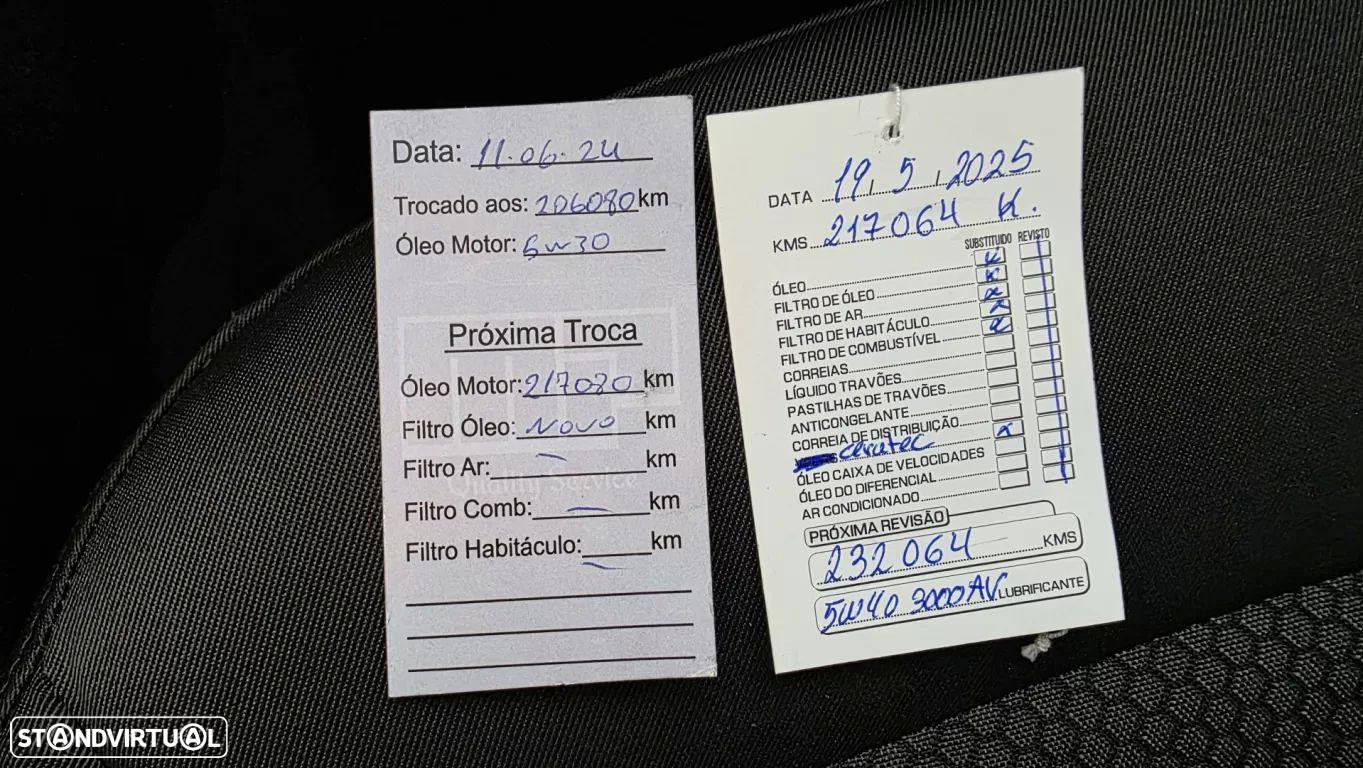 Data: 11.06.24
Trocado aos: 206080 km
Óleo Motor: 5W30
Próxima Troca
Óleo Motor: 217080 km
Filtro Óleo: Novo km
Filtro Ar: — km
Quality Service
Filtro Comb: — km
Filtro Habitáculo: — km
DATA 19, 5, 2025
KMS 217064 K.
SUBSTITUIDO REVISTO
ÓLEO
FILTRO DE ÓLEO
FILTRO DE AR
FILTRO DE HABITÁCULO
FILTRO DE COMBUSTÍVEL
CORREIAS
LÍQUIDO TRAVÕES
PASTILHAS DE TRAVÕES
ANTICONGELANTE
CORREIA DE DISTRIBUIÇÃO
ceratec
ÓLEO CAIXA DE VELOCIDADES
ÓLEO DO DIFERENCIAL
AR CONDICIONADO
PRÓXIMA REVISÃO
232064 KMS
5W40 3000AV LUBRIFICANTE
STANDVIRTUAL